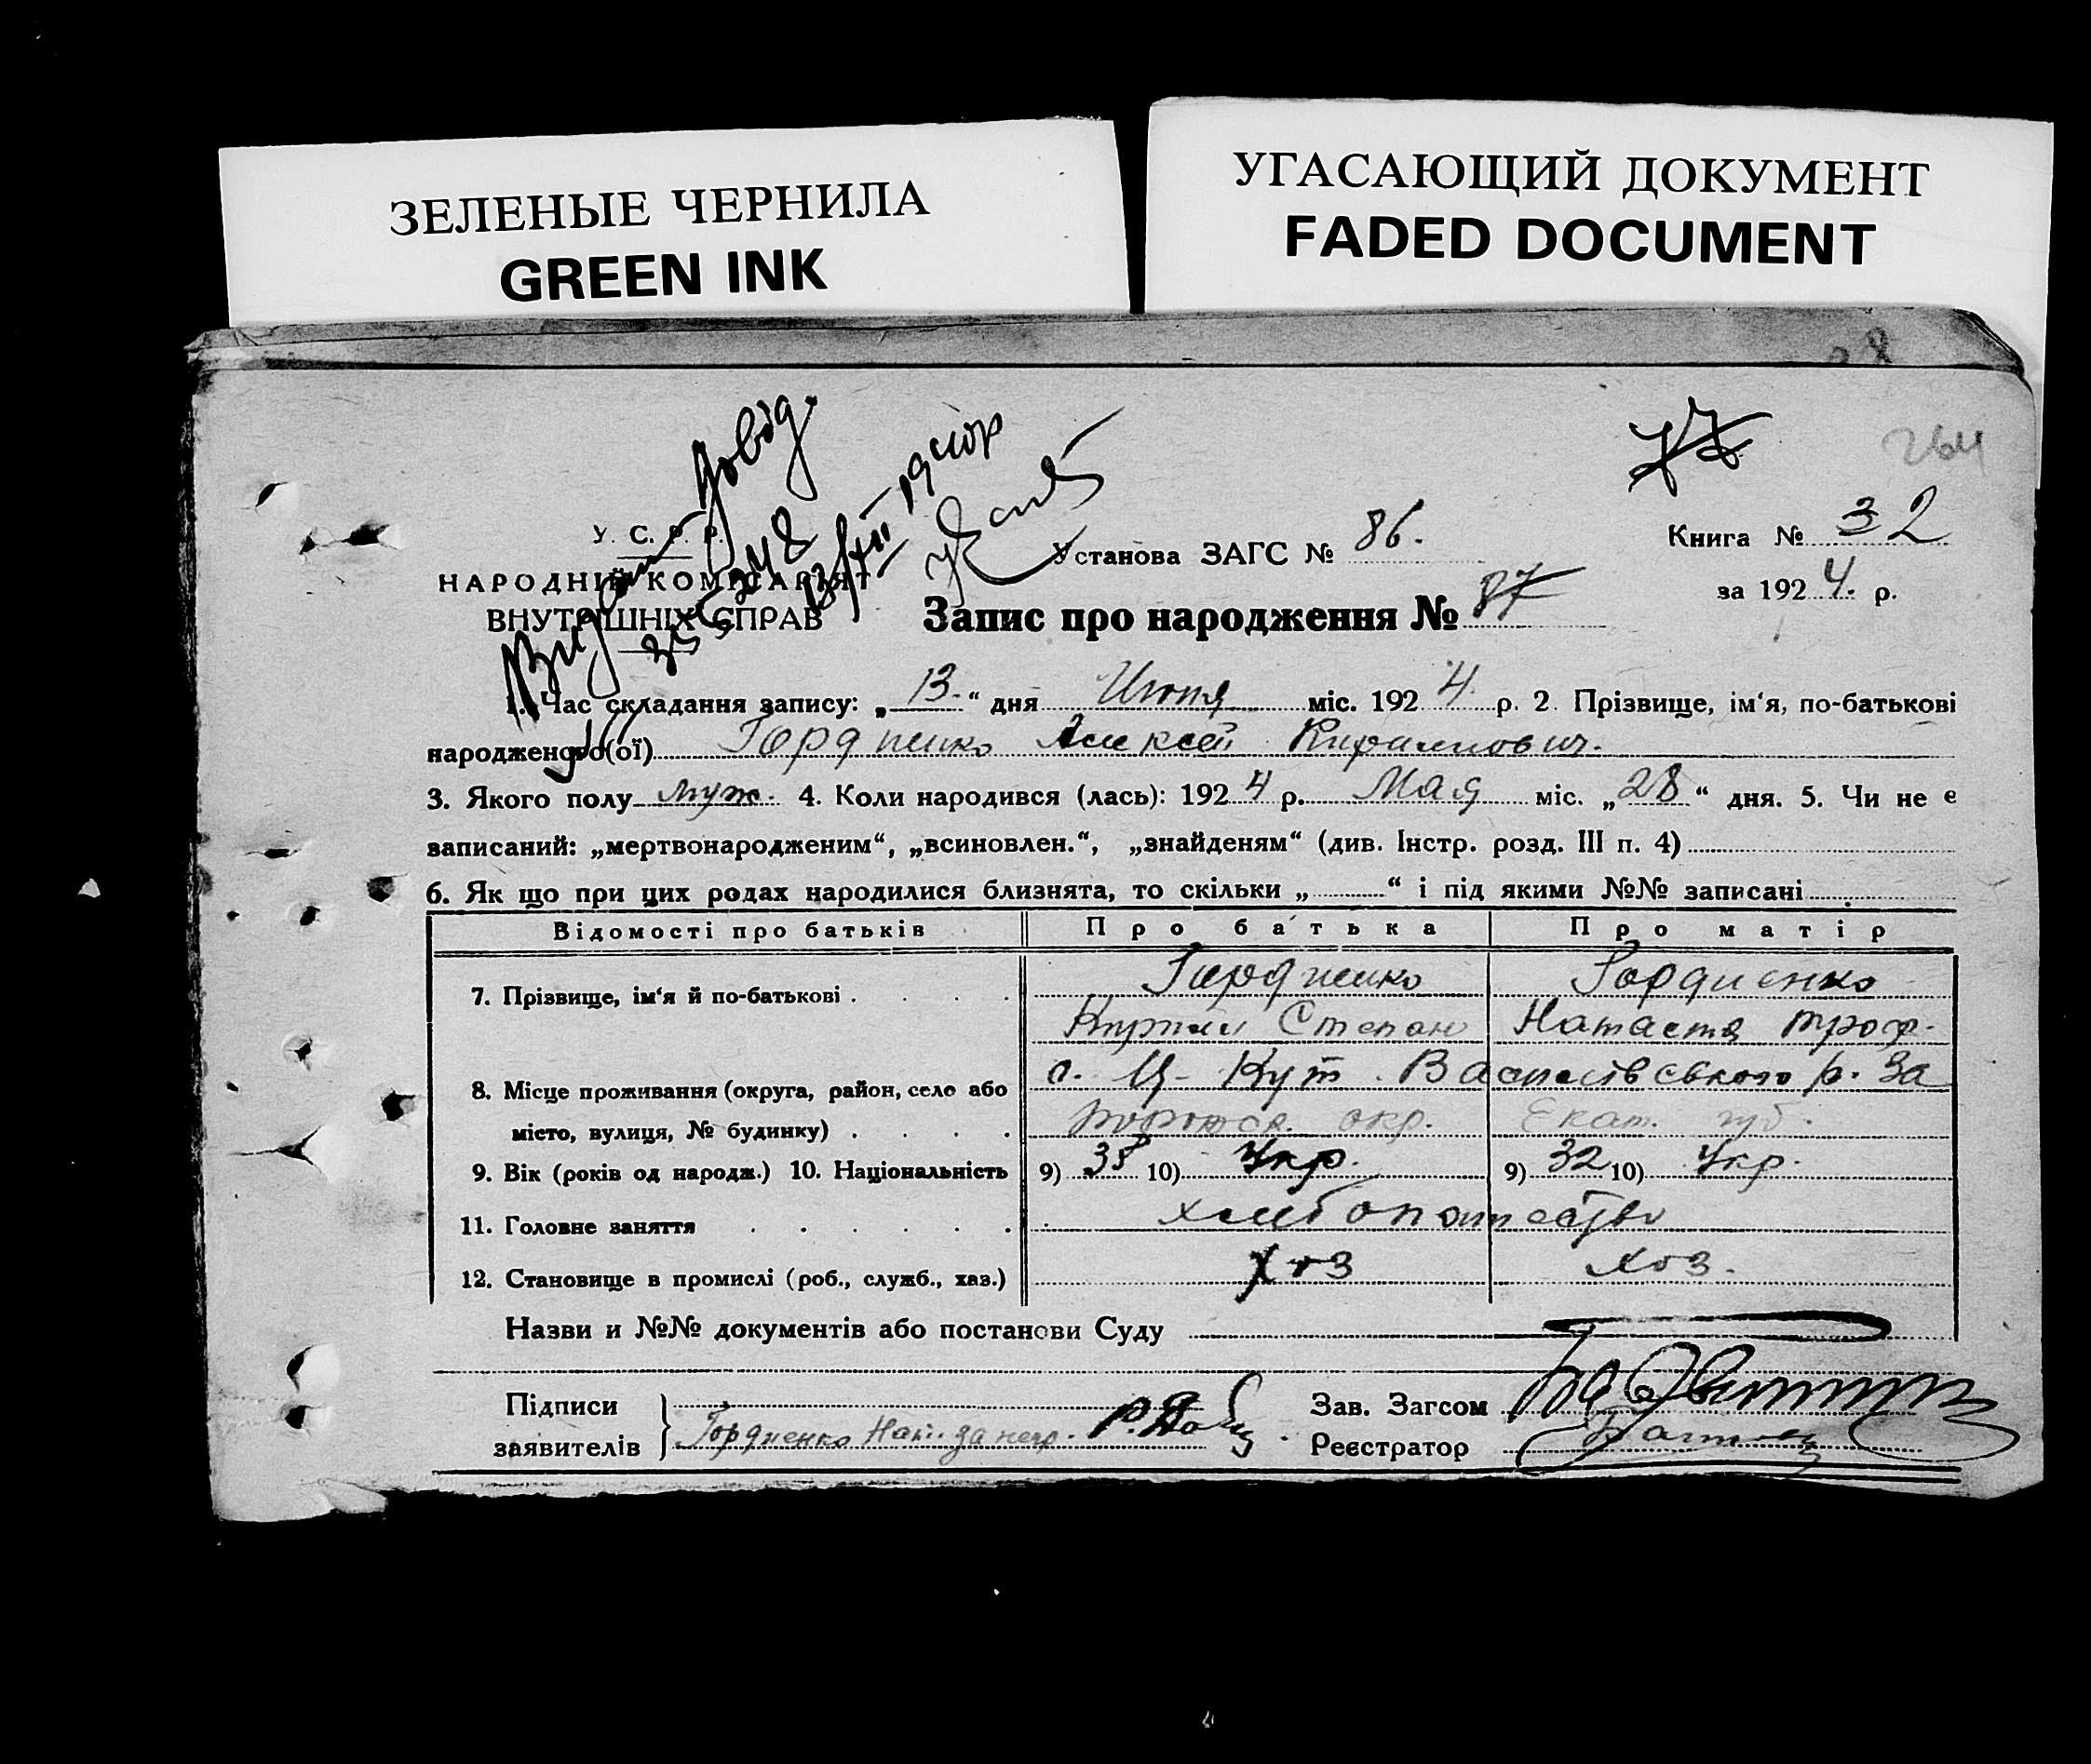 ЗЕЛЕНЫЕ ЧЕРНИЛА
GREEN INK
УГАСАЮЩИЙ ДОКУМЕНТ
FADED DOCUMENT
77
264
У. С. Р. Р.
НАРОДНІЙ КОМІСАРІЯТ
ВНУТРІШНІХ СПРАВ
Видано довід.
Установа ЗАГС № 86.
Книга № 32
за 1924. р.
Запис про народження № 87
1. Час складання запису: „13.“ дня Июня міс. 1924 р. 2. Прізвище, ім‘я, по-батькові
народженого(ої) Гордиенко Алексей Кириллович.
3. Якого полу муж. 4. Коли народився (лась): 1924 р. Мая міс. „28“ дня. 5. Чи не є
записаний: „мертвонародженим“, „всиновлен.“, „знайденям“ (див. Інстр. розд. III п. 4)
6. Як що при цих родах народилися близнята, то скільки „ “ і під якими №№ записані
Відомості про батьків Про батька Про матір
7. Прізвище, ім‘я й по-батькові Гордиенко Гордиенко
Кирилл Степан Натастя Троф.
8. Місце проживання (округа, район, село або с. Ц-Кут. Василівського р. За
місто, вулиця, № будинку) порожск. окр. Екат. губ.
9. Вік (років од народж.) 10. Національність 9) 38 10) Укр. 9) 32 10) Укр.
11. Головне заняття хлібопашество
12. Становище в промислі (роб., служб., хаз.) Хоз Хоз.
Назви и №№ документів або постанови Суду
Підписи
заявителів Гордиенко Нат. за негр.
Зав. Загсом
Реєстратор